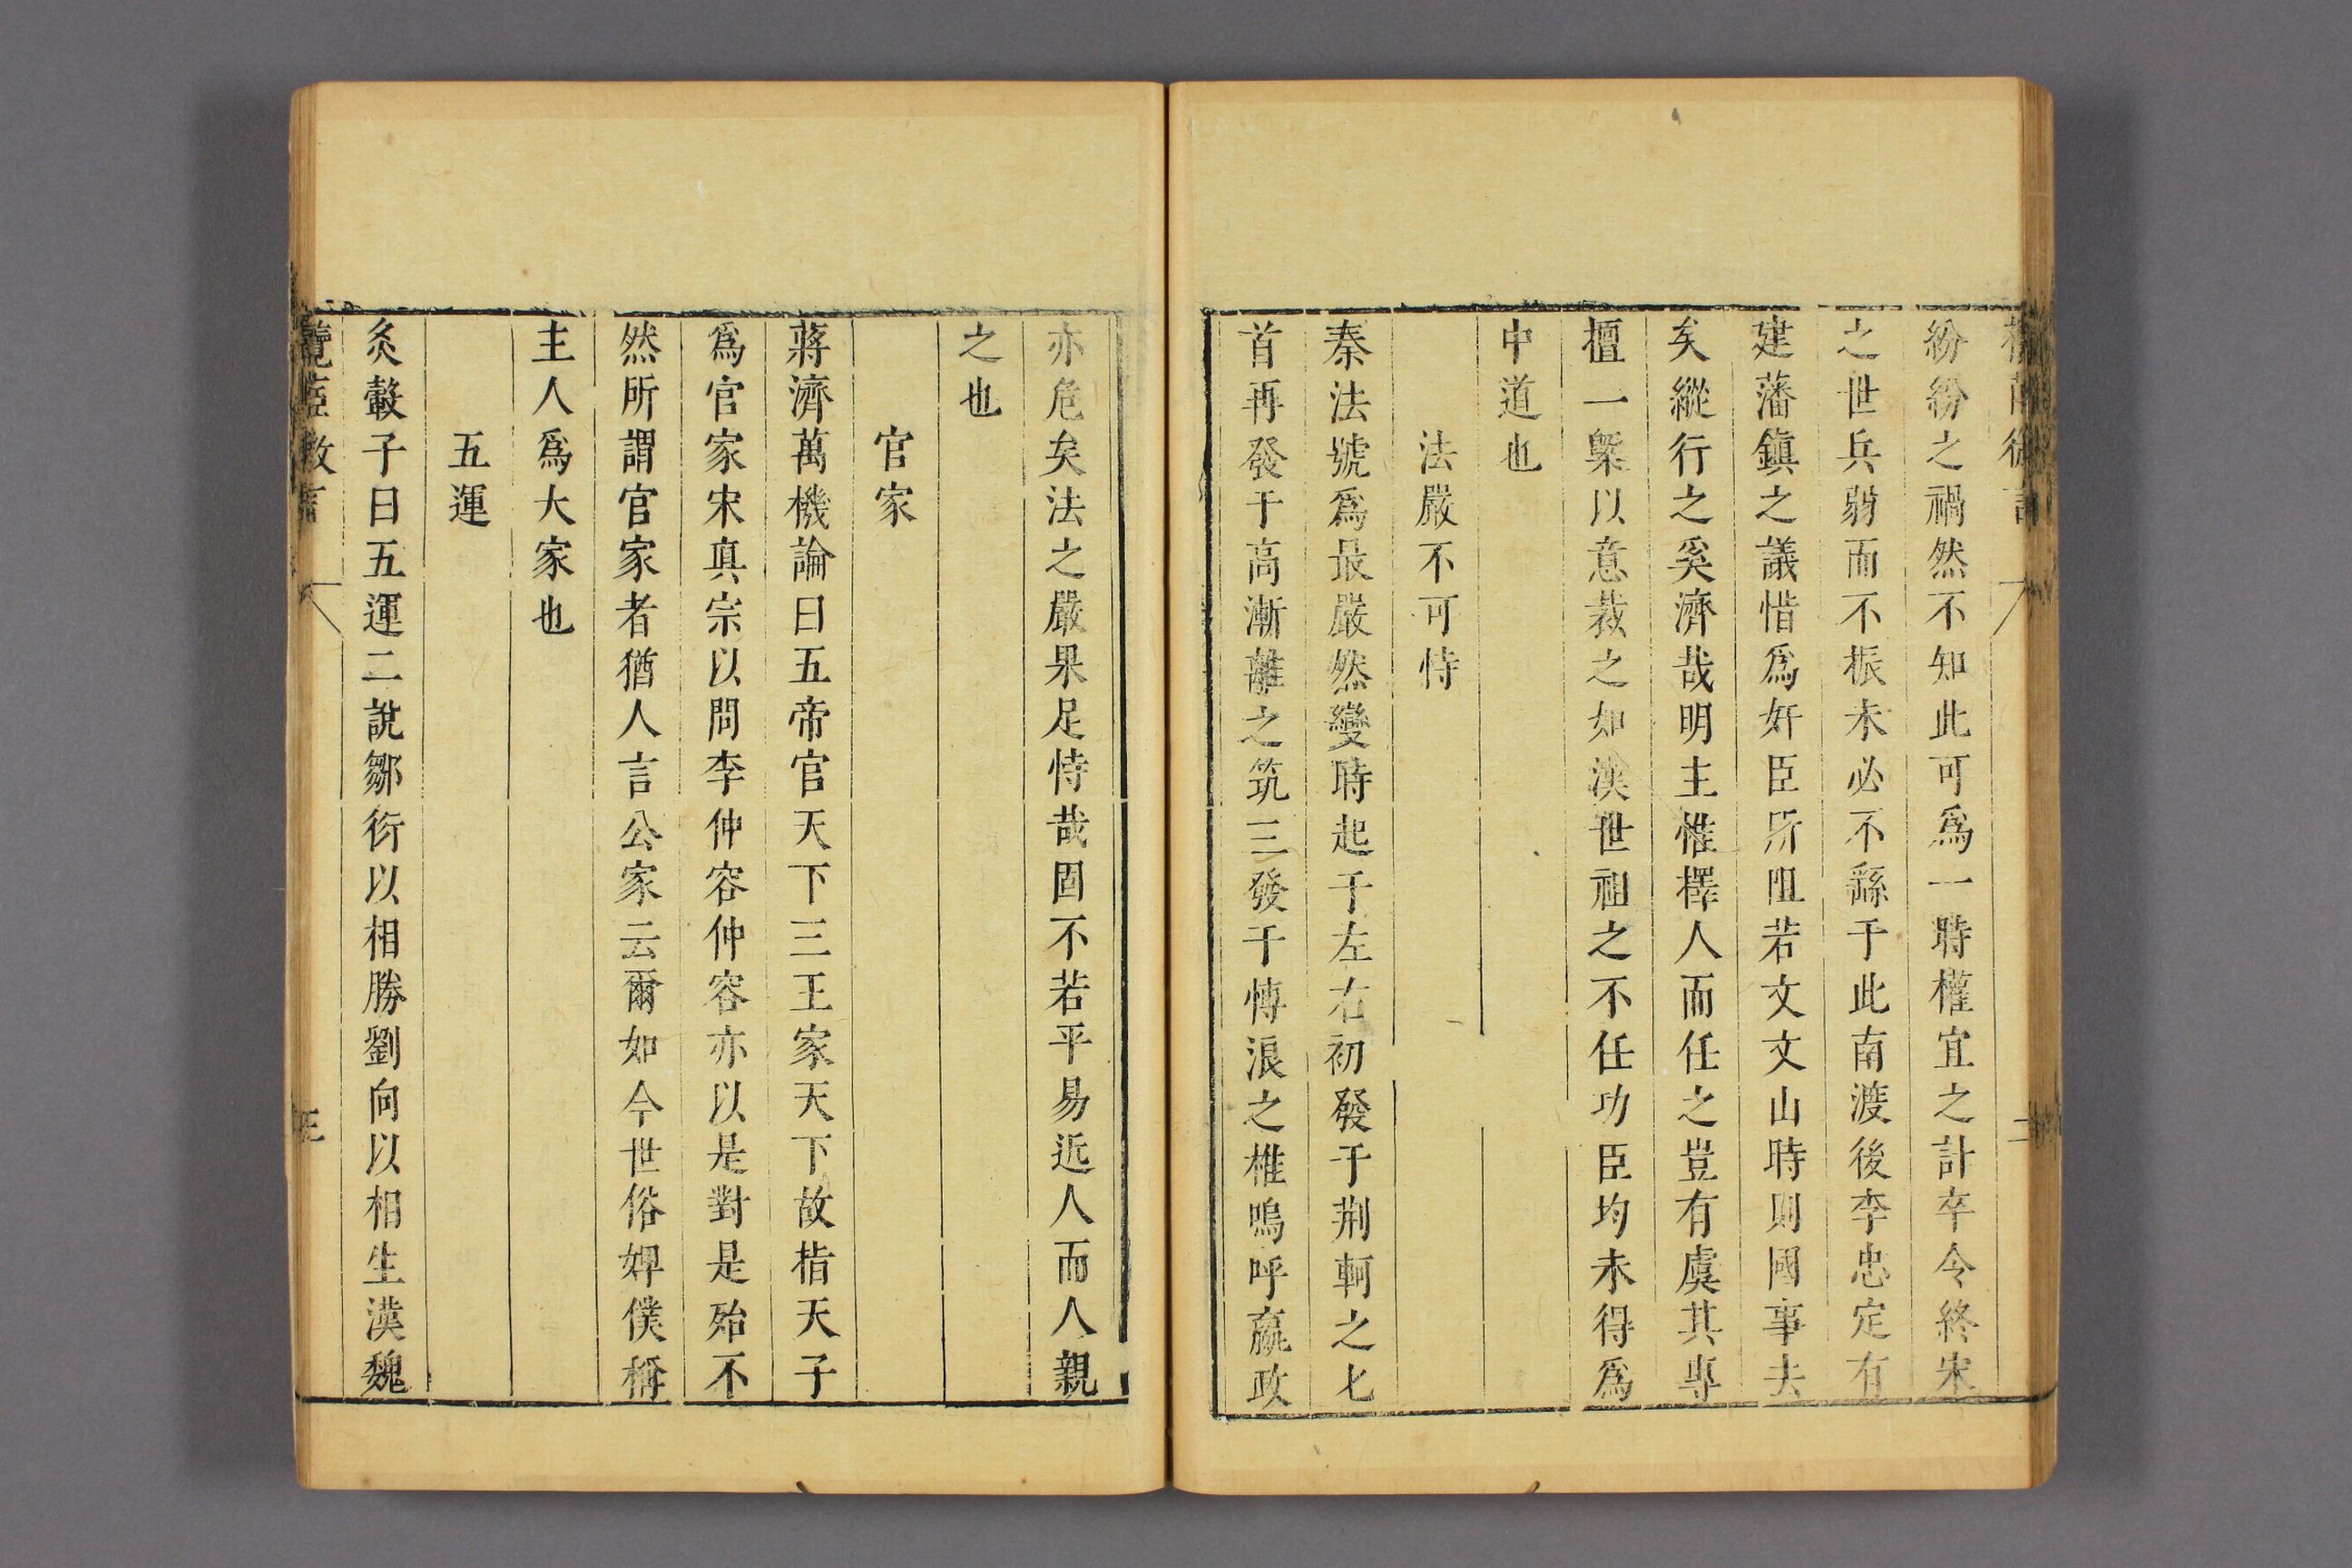 紛紛之禍然不知此可爲一時權宜之計卒令終宋
之世兵弱而不振未必不繇于此南渡後李忠定有
建藩鎮之議惜爲奸臣所阻若文文山時則國事去
矣縱行之奚濟哉明主惟擇人而任之豈有虞其專
擅一槩以意裁之如漢世祖之不任功臣均未得爲
中道也
法嚴不可恃
秦法號爲最嚴然變時起于左右初發于荆軻之匕
首再發于高漸離之筑三發于愽浪之椎嗚呼嬴政
亦危矣法之嚴果足恃哉固不若平易近人而人親
之也
官家
蔣濟萬機論曰五帝官天下三王家天下故指天子
爲官家宋真宗以問李仲容仲容亦以是對是殆不
然所謂官家者猶人言公家云爾如今世俗婢僕稱
主人爲大家也
五運
炙轂子曰五運二說鄒衍以相勝劉向以相生漢魏